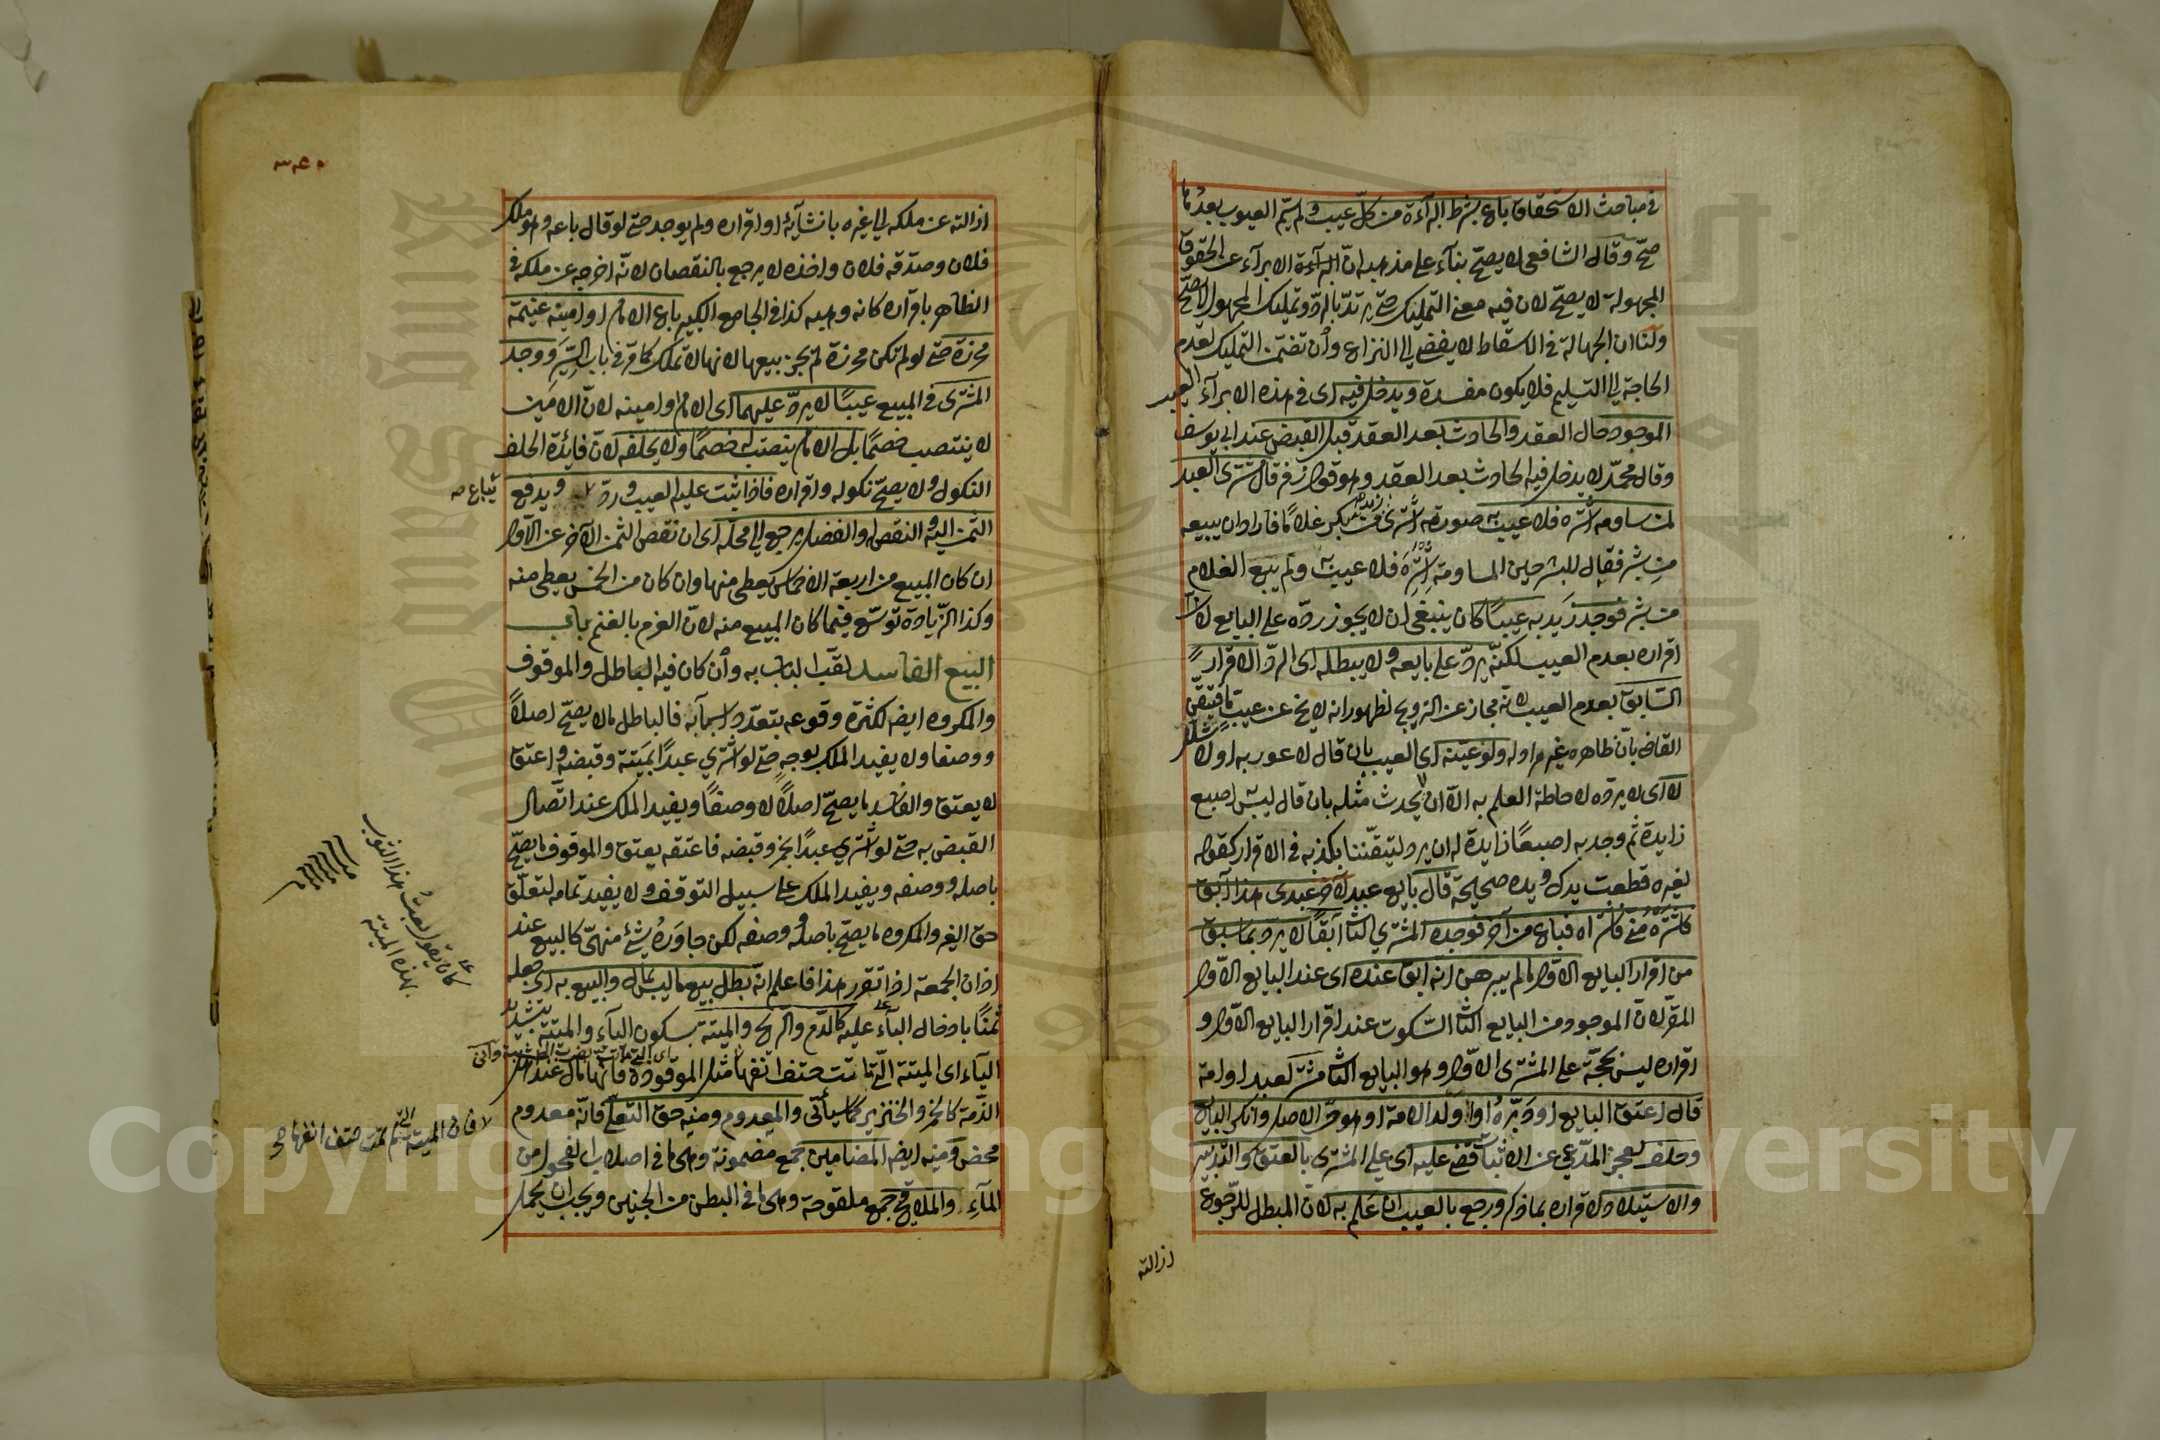 في مباحث الاستحقاق باع بشرط البراءة من كل عيب ولم يسم العيوب بعددها
صح وقال الشافعي لا يصح بناء على مذهبه ان البراءة الابراء عن الحقوق
المجهولة لا يصح لان فيه معنى التمليك حتى يرتد بالرد وتمليك المجهول لا يصح
ولنا ان الجهالة في الاسقاط لا يفضي الى النزاع وان تضمن التمليك لعدم
الحاجة الى التسليم فلا يكون مفسدة ويدخل فيه اى في هذه الابراء العيب
الموجود حال العقد والحادث بعد العقد قبل القبض عند ابي يوسف
وقال محمد لا يدخل فيه الحادث بعد العقد وهو قول زفر قال مشترى العبد
لمن ساومه اشتره فلا عيب به صورته اشترى زيد من بكر غلاما فاراد ان يبيعه
من بشر فقال للبشر حين المساومة اشتره فلا عيب به ولم يبع الغلام
من بشر فوجد زيد به عيبا كان ينبغي ان لا يجوز رده على البايع لان
اقراره بعدم العيب لكنه يرد على بايعه ولا يبطله اى الرد الاقرار
السابق بعدم العيب لانه مجاز عن الترويج لظهور انه لا يخ عن عيب ما فيتيقن
القاضي بان ظاهره غير مراد له ولو عينه اى العيب بان قال لا عور به او لا شلل
لا اى لا يرده لاحاطة العلم به الا ان لا يحدث مثله بان قال ليس به اصبع
زايدة ثم وجد به اصبعا زايدة له ان يرد لتيقننا بكذبه في الاقرار كقوله
لغيره قطعت يدك ويده صحيحة قال بايع عبد لآخر عبدى هذا آبق
فاشتره مني فاشتراه فباع من آخر فوجده المشتري الثاني آبقا لا يرد بما سبق
من اقرار البايع الاول ما لم يبرهن انه ابق عنده اى عند البايع الاول
المقر لان الموجود من البايع الثاني السكوت عند اقرار البايع الاول و
اقراره ليس بحجة على المشترى الاول وهو البايع الثاني مشتر لعبد او امة
قال اعتق البايع او دبره او اولد الامة او هو حر الاصل وانكر البايع
وحلف لعجز المدعي عن الاثبات قضي عليه اى على المشترى بالعتق والتدبير
والاستيلاد لاقراره بما ذكر ورجع بالعيب ان علم به لان المبطل للرجوع
ازالته
٣٤٠
ازالته عن ملكه الى غيره بانشائه او اقراره ولم يوجد حتى لو قال باعه وهو ملك
فلان وصدقه فلان واخذه لا يرجع بالنقصان لانه اخرجه عن ملكه في
الظاهر باقراره كانه وهبه كذا في الجامع الكبير باع الامام او امينه غنيمة
محرزة حتى لو لم تكن محرزة لم يجز بيعها لانها لا تملك كما مر في باب السير ووجد
المشترى في المبيع عيبا لا يرد عليهما اى الامام وامينه لان الامين
لا ينتصب خصما بل الامام ينصب له خصما ولا يحلفه لان فائدة الحلف
النكول ولا يصح نكوله واقراره فاذا ثبت عليه العيب ورد ويدفع
يباع صه
الثمن اليه والنقص والفضل يرجع الى محله اى ان نقص الثمن الآخر عن الاول
ان كان المبيع من اربعة الاخماس يعطى منها وان كان من الخمس يعطى منه
وكذا الزيادة توسع فيما كان المبيع منه لان الغرم بالغنم باب
البيع الفاسد لقب الباب به وان كان فيه الباطل والموقوف
والمكروه ايضه لكثرة وقوعه بتعدد اسبابه فالباطل ما لا يصح اصلا
ووصفا ولا يفيد الملك بوجه حتى لو اشتري عبدا بميتة وقبضه واعتق
لا يعتق والفاسد ما يصح اصلا لا وصفا ويفيد الملك عند اتصال
القبض به حتى لو اشترى عبدا بخمر وقبضه فاعتقه يعتق والموقوف ما يصح
باصله ووصفه ويفيد الملك على سبيل التوقف ولا يفيد تمامه لتعلق
حق الغير والمكروه ما يصح باصله ووصفه لكن جاوره شئ منهي كالبيع عند
اذان الجمعة اذا تقرر هذا فاعلم انه بطل بيع ما ليس بمال والبيع به اى جعله
ثمنا بادخال الباء عليه كالدم والريح والميتة بسكون الياء والميتة بتشديد
الياء اى الميتة التي ماتت حتف انفها مثل الموقوذة فانها مال عند اهل
الذمة كالخمر والخنزير كما سيأتي والمعدوم ومنه حق التعلى فانه معدوم
محض ومنه ايضه المضامين جمع مضمونة وهى ما في اصلاب الفحول من
الماء والملاقيح جمع ملقوحة وهى ما في البطن من الجنين ويجب ان يحمل
كان يقول بعت هذا الثوب
بهذه الميتة